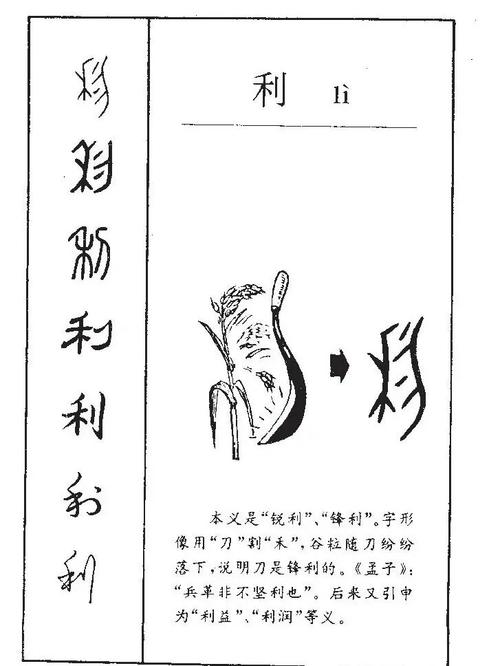 利 lì
本义是“锐利”、“锋利”。字形
像用“刀”割“禾”，谷粒随刀纷纷
落下，说明刀是锋利的。《孟子》：
“兵革非不坚利也”。后来又引申
为“利益”、“利润”等义。
利
利
利
利
利
利
利
利